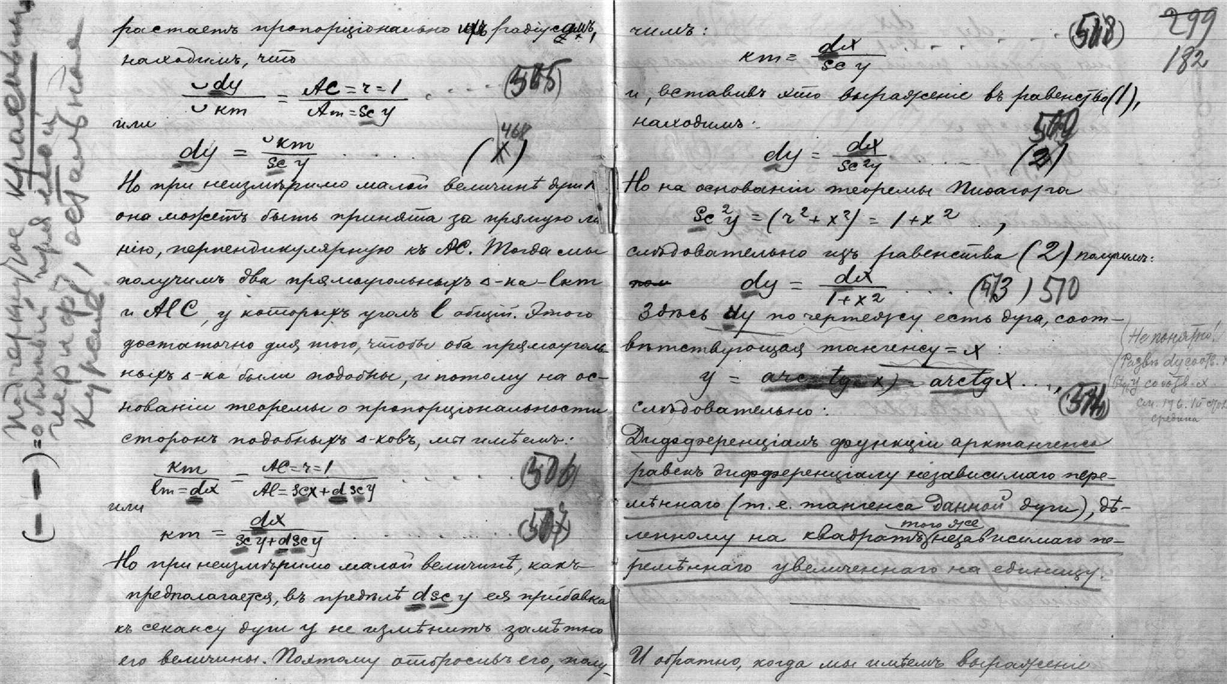 Подчеркнутое красным
(— —) = обыкновен. прямой
шрифт, остальная
курсив
растаетъ пропорціонально радіусамъ,
находимъ, что
◡dy / ◡km = AC=r=1 / Am=sc y ..... (505)
или
dy = ◡km / sc y .......... (468)
Но при неизмѣримо малой величинѣ дуги
она можетъ быть принята за прямую ли-
нію, перпендикулярную къ AC. Тогда мы
получимъ два прямоугольныхъ Δ-ка — lкm
и AlC, у которыхъ уголъ l общій. Этого
достаточно для того, чтобы оба прямоуголь-
ныхъ Δ-ка были подобны, и потому на ос-
нованіи теоремы о пропорціональности
сторонъ подобныхъ Δ-ковъ, мы имѣемъ:
km / lm=dx = AC=r=1 / Al=scx+dscy ..... (506)
или
km = dx / scy+dscy .......... (507)
Но при неизмѣримо малой величинѣ, какъ
предполагается, въ предѣлѣ dsc y ея прибавка
къ секансу дуги y не измѣнитъ замѣтно
его величины. Поэтому отбросивъ его, полу-
299
182
чимъ: (508)
km = dx / sc y
и, вставивъ это выраженіе въ равенство (1),
находимъ: 509
dy = dx / sc²y ..... (2)
Но на основаніи теоремы Пиѳагора
sc²y = (r²+x²) = 1+x² ..,
слѣдовательно изъ равенства (2) получимъ:
dy = dx / 1+x² ..... (473) 510
Здѣсь dy по чертежу есть дуга, соот-
вѣтствующая тангенсу = x:
y = arctgx ...,
слѣдовательно: (511)
Дифференціалъ функціи арктангенса
равенъ дифференціалу независимаго пере-
мѣннаго (т.е. тангенса данной дуги), дѣ-
ленному на квадратъ того же независимаго пе-
ремѣннаго увеличеннаго на единицу.
И обратно, когда мы имѣемъ выраженіе
Не понятно!
Развѣ dy соотв.
y соотв. x
см. 176
средина